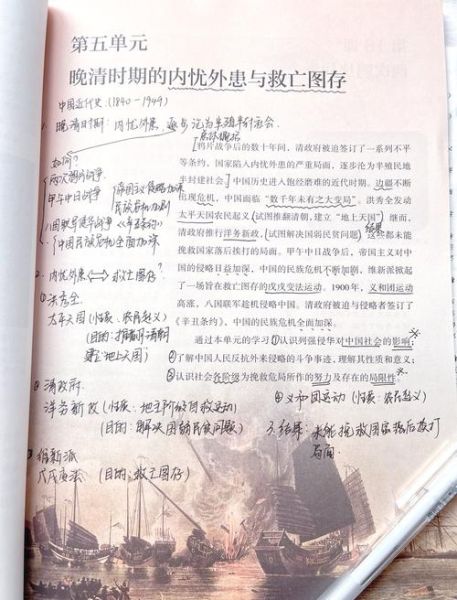 第五单元
晚清时期的内忧外患与救亡图存
中国近代史(1840-1949)
1. 晚清时期:内忧外患,逐步沦为半殖半封社会
[鸦片战争后的数十年间,清政府被迫签订了一系列不平
等条约,国家陷入内忧外患的严重局面,逐步沦为半殖民地
半封建社会]中国历史进入饱经磨难的近代时期。边疆不断
出现危机,中国面临“数千年未有之大变局”。洪秀全发动
太平天国农民起义(试图推翻清朝,建立“地上天国”)继而,
清政府推行洋务新政,(试图解决国弱民贫问题)这些都未能
结果
挽救国家落后挨打的局面。甲午中日战争后,帝国主义对中
国的侵略日益加深,中国的民族危机不断加剧,维新派掀起
了一场旨在救亡图存的戊戌变法运动。1900年,义和团运动
高涨,八国联军趁机侵略中国。清政府被迫与侵略者签订了
《辛丑条约》,中国的民族危机全面加深。
通过本单元的学习①认识列强侵华对中国社会的影响;
②了解中国人民反抗外来侵略的斗争事迹,理解其性质和意义;
③认识社会各阶级为挽救危局所作的努力及存在的局限性。
如何?
两次鸦片战争
甲午中日战争
帝国主义侵略加深
民族危机加剧
八国联军侵华战争《辛丑条约》
中国民族危机全面加深
2. 内忧外患⟺救亡图存?
①洪秀全
太平天国(性质:农民起义)
(目的:推翻清朝
建立地上天国)
②清政府
洋务新政(性质:地主阶级自救运动)
(目的:解决国弱民贫问题)
③维新派
戊戌变法 (目的:救亡图存)
④义和团运动(性质:农民起义)
3. 结果:未能挽救国家落后挨打
局面